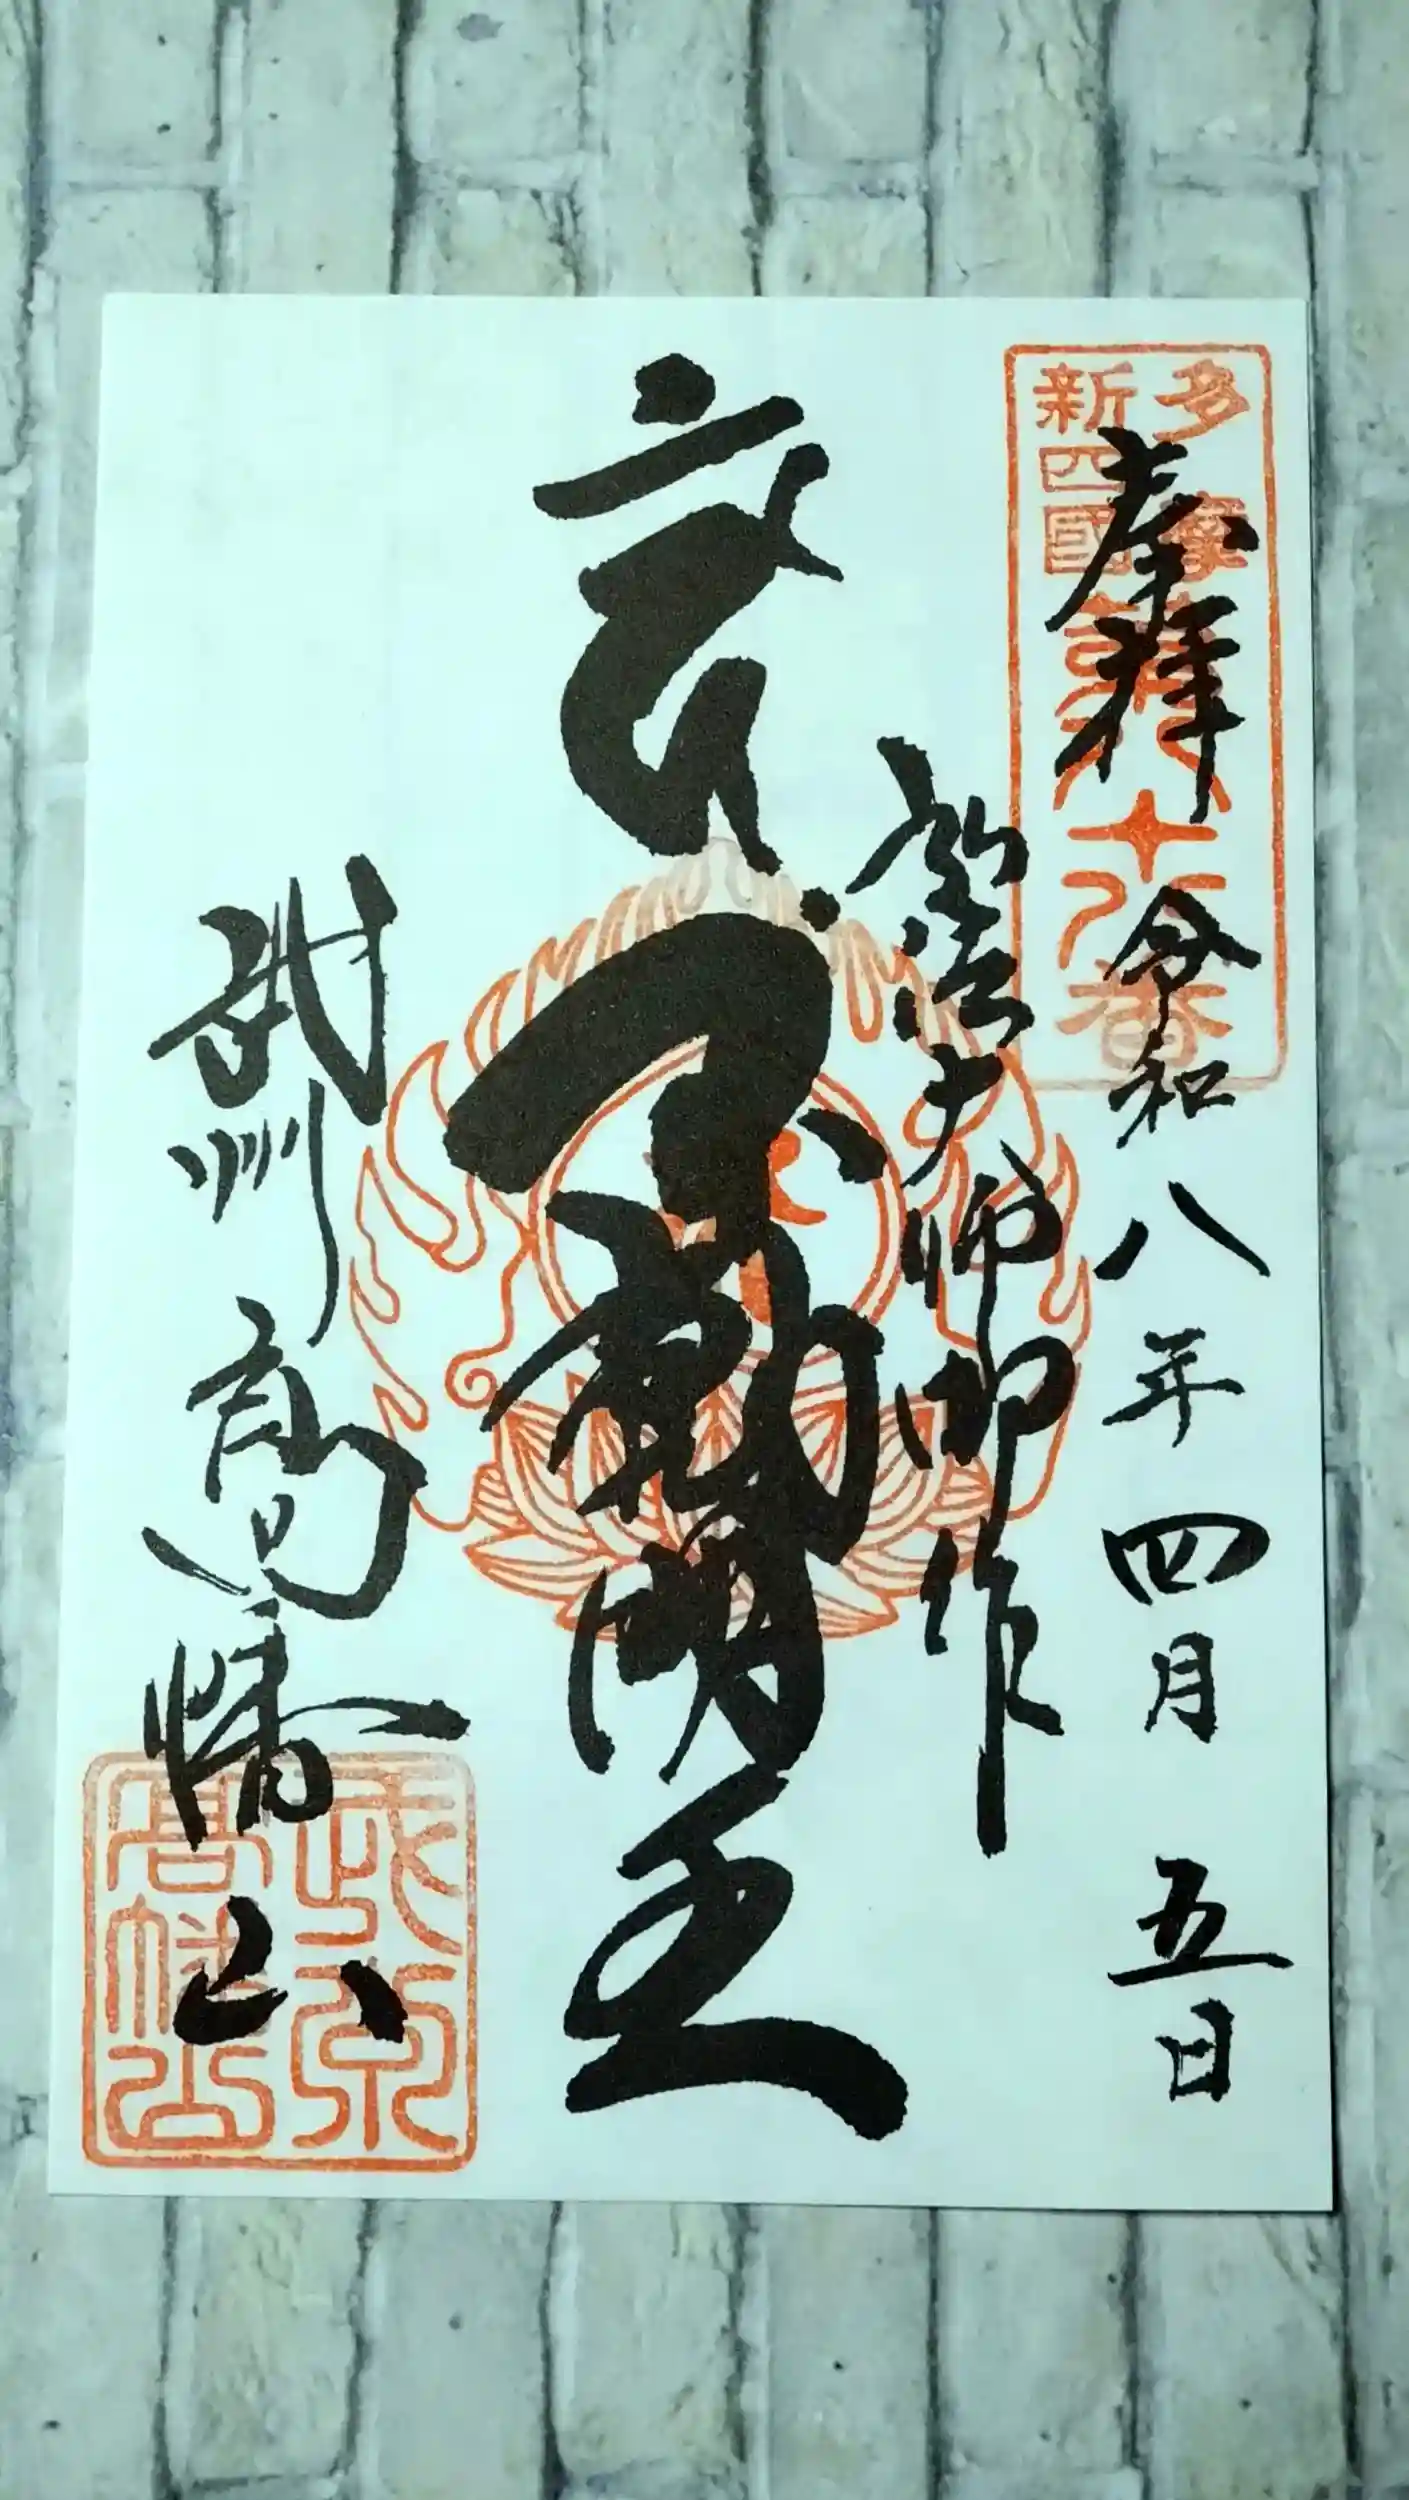 多摩
新四國
第八十八番
奉拝 令和八年四月五日
弘法大師御作
不動明王
武州 高幡山
高幡山